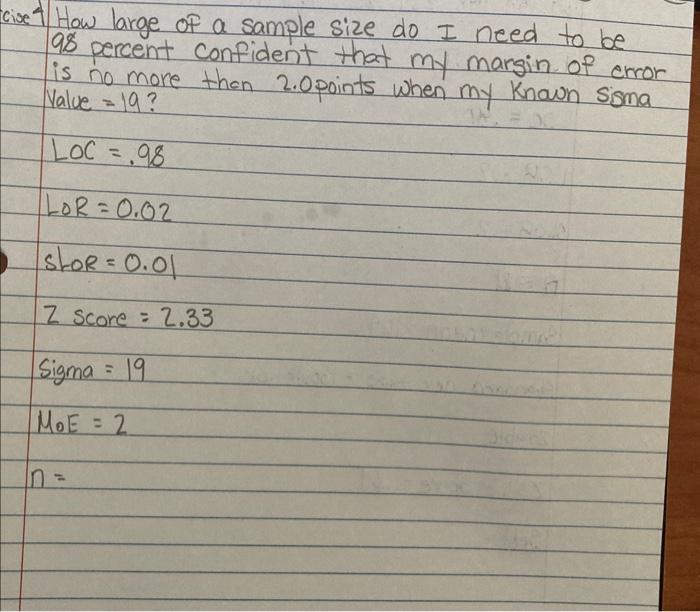 cise 4 How large of a sample size do I need to be
98 percent confident that my margin of error
is no more then 2.0 points when my Known sigma
Value = 19?
LOC = .98
LOR = 0.02
SLOR = 0.01
Z Score = 2.33
Sigma = 19
MOE = 2
n =